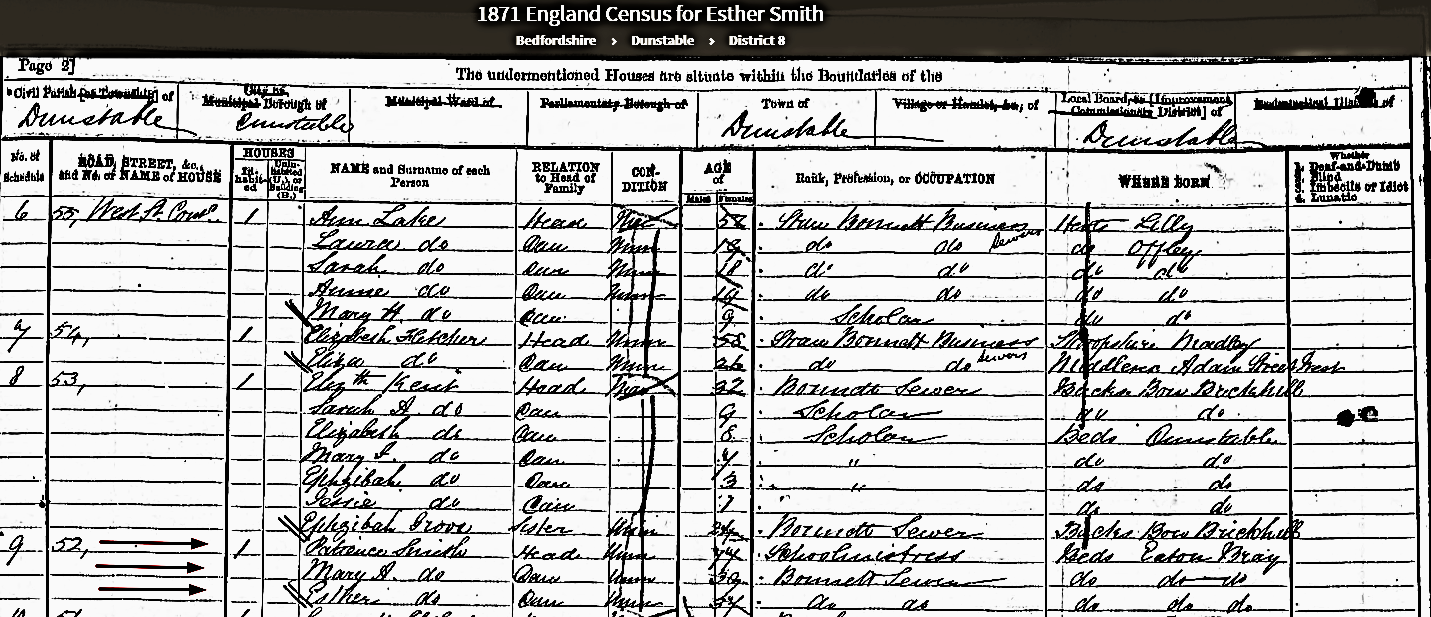 1871 England Census for Esther Smith
Bedfordshire > Dunstable > District 8
Page 2]
The undermentioned Houses are situate within the Boundaries of the
Civil Parish [or Township] of
City or Municipal Borough of
Municipal Ward of
Parliamentary Borough of
Town of
Village or Hamlet, &c., of
Local Board, or [Improvement Commissioners District] of
Ecclesiastical District of
Dunstable Dunstable Dunstable Dunstable
No. of Schedule
ROAD, STREET, &c., and No. or NAME of HOUSE
HOUSES
Inhabited
Uninhabited (U.), or Building (B.)
NAME and Surname of each Person
RELATION to Head of Family
CONDITION
AGE of
Males Females
Rank, Profession, or OCCUPATION
WHERE BORN
Whether
1. Deaf-and-Dumb
2. Blind
3. Imbecile or Idiot
4. Lunatic
6 55, West St 1 Ann Lake Head 52 Straw Bonnett Business Herts Lilly
Laura do Daur Unm 19 do do Sewers do Offley
Sarah do Daur Unm 18 do do do do
Annie do Daur Unm 14 do do do do
Mary H. do Daur 9 Scholar do do
7 54, 1 Elizabeth Fletcher Head Unm 58 Straw Bonnett Business Shropshire Madley
Eliza do Daur Unm 26 do do Sewers Middlesex Adam Street West
8 53, 1 Elizth Kent Head 32 Bonnett Sewer Bucks Bow Brickhill
Sarah A. do Daur 9 Scholar do do
Elizabeth do Daur 8 Scholar Beds Dunstable
Mary do Daur " do do
Ephzibah do Daur 3 " do do
Jessie do Daur 1 do do
Ephzibah Grove Sister Unm 24 Bonnett Sewer Bucks Bow Brickhill
9 52, 1 Patience Smith Head Unm 74 Schoolmistress Beds Eaton Bray
Mary A. do Daur Unm 39 Bonnett Sewer do do do
Esther do Daur Unm 37 do do do do do